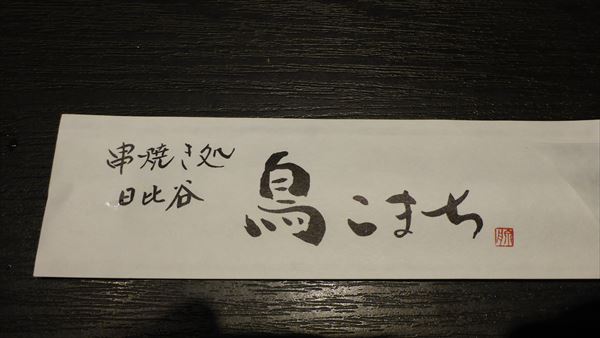 串焼き処
日比谷
鳥こまち